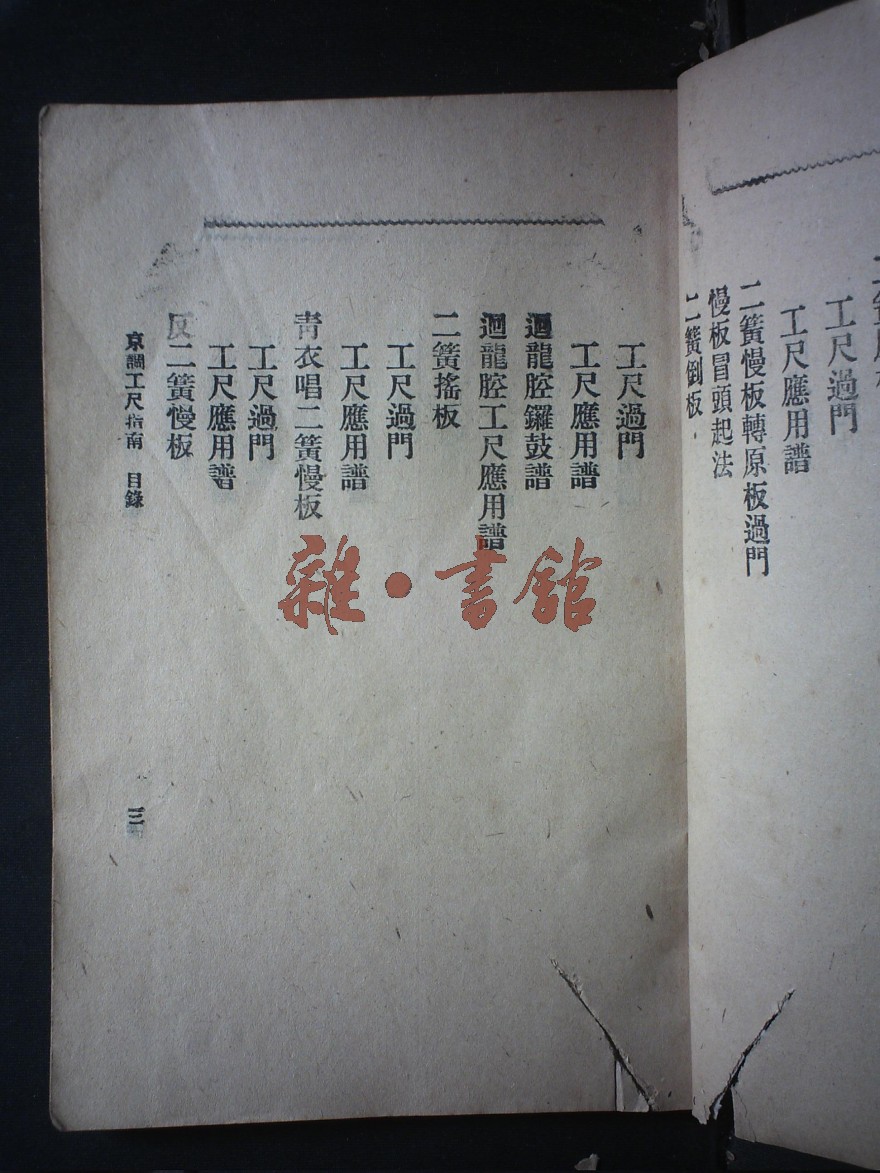 工尺過門
工尺應用譜
二簧慢板轉原板過門
慢板冒頭起法
二簧倒板
工尺過門
工尺應用譜
迴龍腔鑼鼓譜
迴龍腔工尺應用譜
二簧搖板
工尺過門
工尺應用譜
青衣唱二簧慢板
工尺過門
工尺應用譜
反二簧慢板
京調工尺指南 目錄
三
雜·書館